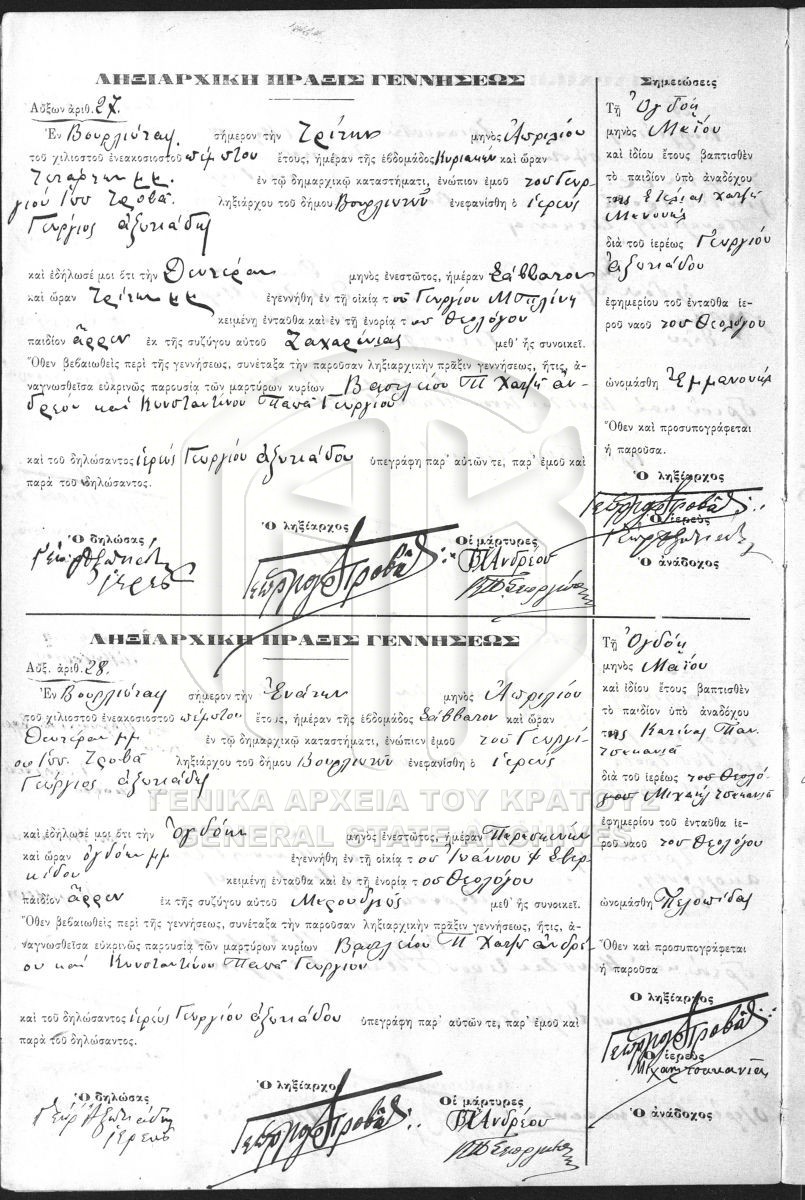 ΛΗΞΙΑΡΧΙΚΗ ΠΡΑΞΙΣ ΓΕΝΝΗΣΕΩΣ
Αὔξων ἀριθ. 27.
Ἐν Βουρλιώταις σήμερον τὴν Τρίτην μηνὸς Ἀπριλίου
τοῦ χιλιοστοῦ ἐνεακοσιοστοῦ πέμπτου ἔτους, ἡμέραν τῆς ἑβδομάδος Κυριακὴν καὶ ὥραν
Τετάρτην μμ. ἐν τῷ δημαρχικῷ καταστήματι, ἐνώπιον ἐμοῦ τοῦ Γεωρ-
γίου Ἰω. Τροβᾶ ληξιάρχου τοῦ δήμου Βουρλιωτῶν ἐνεφανίσθη ὁ ἱερεύς
Γεώργιος
καὶ ἐδήλωσέ μοι ὅτι τὴν Δευτέραν μηνὸς ἐνεστῶτος, ἡμέραν Σάββατον
καὶ ὥραν Τρίτην μμ ἐγεννήθη ἐν τῇ οἰκίᾳ τοῦ Γεωργίου
κειμένῃ ἐνταῦθα καὶ ἐν τῇ ἐνορίᾳ τοῦ Θεολόγου
παιδίον ἄρρεν ἐκ τῆς συζύγου αὐτοῦ Ζαχαρένιας μεθ᾽ ἧς συνοικεῖ.
Ὅθεν βεβαιωθεὶς περὶ τῆς γεννήσεως, συνέταξα τὴν παροῦσαν ληξιαρχικὴν πρᾶξιν γεννήσεως, ἥτις, ἀ-
ναγνωσθεῖσα εὐκρινῶς παρουσίᾳ τῶν μαρτύρων κυρίων Βασιλείου Π Χατζῆ ἀν-
δρέου καὶ Κωνσταντίνου Παπᾶ Γεωργίου
καὶ τοῦ δηλώσαντος ἱερέως Γεωργίου ὑπεγράφη παρ᾽ αὐτῶν τε, παρ᾽ ἐμοῦ καὶ
παρὰ τοῦ δηλώσαντος.
Ὁ δηλώσας
Ὁ ληξίαρχος
Οἱ μάρτυρες
ἱερεύς
Γεώργιος Τροβᾶς
Β Π Ἀνδρέου
Κ Π Γεωργίου
Σημειώσεις
Τῇ Ὀγδόῃ
μηνὸς Μαΐου
καὶ ἰδίου ἔτους βαπτισθὲν
τὸ παιδίον ὑπὸ ἀναδόχου
της Χατζῆ
διὰ τοῦ ἱερέως Γεωργίου
ἐφημερίου τοῦ ἐνταῦθα ἱε-
ροῦ ναοῦ τοῦ Θεολόγου
ὠνομάσθη Ἐμμανουήλ
Ὅθεν καὶ προσυπογράφεται
ἡ παροῦσα.
Ὁ ληξίαρχος
Γεώργιος Τροβᾶς
Ὁ ἱερεὺς
Ὁ ἀνάδοχος
ΛΗΞΙΑΡΧΙΚΗ ΠΡΑΞΙΣ ΓΕΝΝΗΣΕΩΣ
Αὐξ. ἀριθ. 28.
Ἐν Βουρλιώταις σήμερον τὴν Ἐνάτην μηνὸς Ἀπριλίου
τοῦ χιλιοστοῦ ἐνεακοσιοστοῦ πέμπτου ἔτους, ἡμέραν τῆς ἑβδομάδος Σάββατον καὶ ὥραν
Δευτέραν μμ ἐν τῷ δημαρχικῷ καταστήματι, ἐνώπιον ἐμοῦ τοῦ Γεωργί-
ου Ἰω. Τροβᾶ ληξιάρχου τοῦ δήμου Βουρλιωτῶν ἐνεφανίσθη ὁ ἱερεύς
Γεώργιος
καὶ ἐδήλωσέ μοι ὅτι τὴν ὀγδόην μηνὸς ἐνεστῶτος, ἡμέραν Παρασκευήν
καὶ ὥραν ὀγδόην μμ ἐγεννήθη ἐν τῇ οἰκίᾳ τοῦ Ἰωάννου
κειμένῃ ἐνταῦθα καὶ ἐν τῇ ἐνορίᾳ τοῦ Θεολόγου
παιδίον ἄρρεν ἐκ τῆς συζύγου αὐτοῦ μεθ᾽ ἧς συνοικεῖ.
Ὅθεν βεβαιωθεὶς περὶ τῆς γεννήσεως, συνέταξα τὴν παροῦσαν ληξιαρχικὴν πρᾶξιν γεννήσεως, ἥτις, ἀ-
ναγνωσθεῖσα εὐκρινῶς παρουσίᾳ τῶν μαρτύρων κυρίων Βασιλείου Π Χατζῆ ἀνδρέ-
ου καὶ Κωνσταντίνου Παπᾶ Γεωργίου
καὶ τοῦ δηλώσαντος ἱερέως Γεωργίου ὑπεγράφη παρ᾽ αὐτῶν τε, παρ᾽ ἐμοῦ καὶ
παρὰ τοῦ δηλώσαντος.
Ὁ δηλώσας
Ὁ ληξίαρχος
Οἱ μάρτυρες
ἱερεύς
Γεώργιος Τροβᾶς
Β Π Ἀνδρέου
Κ Π Γεωργίου
Τῇ Ὀγδόῃ
μηνὸς Μαΐου
καὶ ἰδίου ἔτους βαπτισθὲν
τὸ παιδίον ὑπὸ ἀναδόχου
της Κατίνας
διὰ τοῦ ἱερέως τοῦ Θεολό-
γου Μιχαὴλ
ἐφημερίου τοῦ ἐνταῦθα ἱε-
ροῦ ναοῦ τοῦ Θεολόγου
ὠνομάσθη Πελοπίδας
Ὅθεν καὶ προσυπογράφεται
ἡ παροῦσα
Ὁ ληξίαρχος
Γεώργιος Τροβᾶς
Ὁ ἱερεὺς
Ὁ ἀνάδοχος
ΓΕΝΙΚΑ ΑΡΧΕΙΑ ΤΟΥ ΚΡΑΤΟΥΣ
GENERAL STATE ARCHIVES